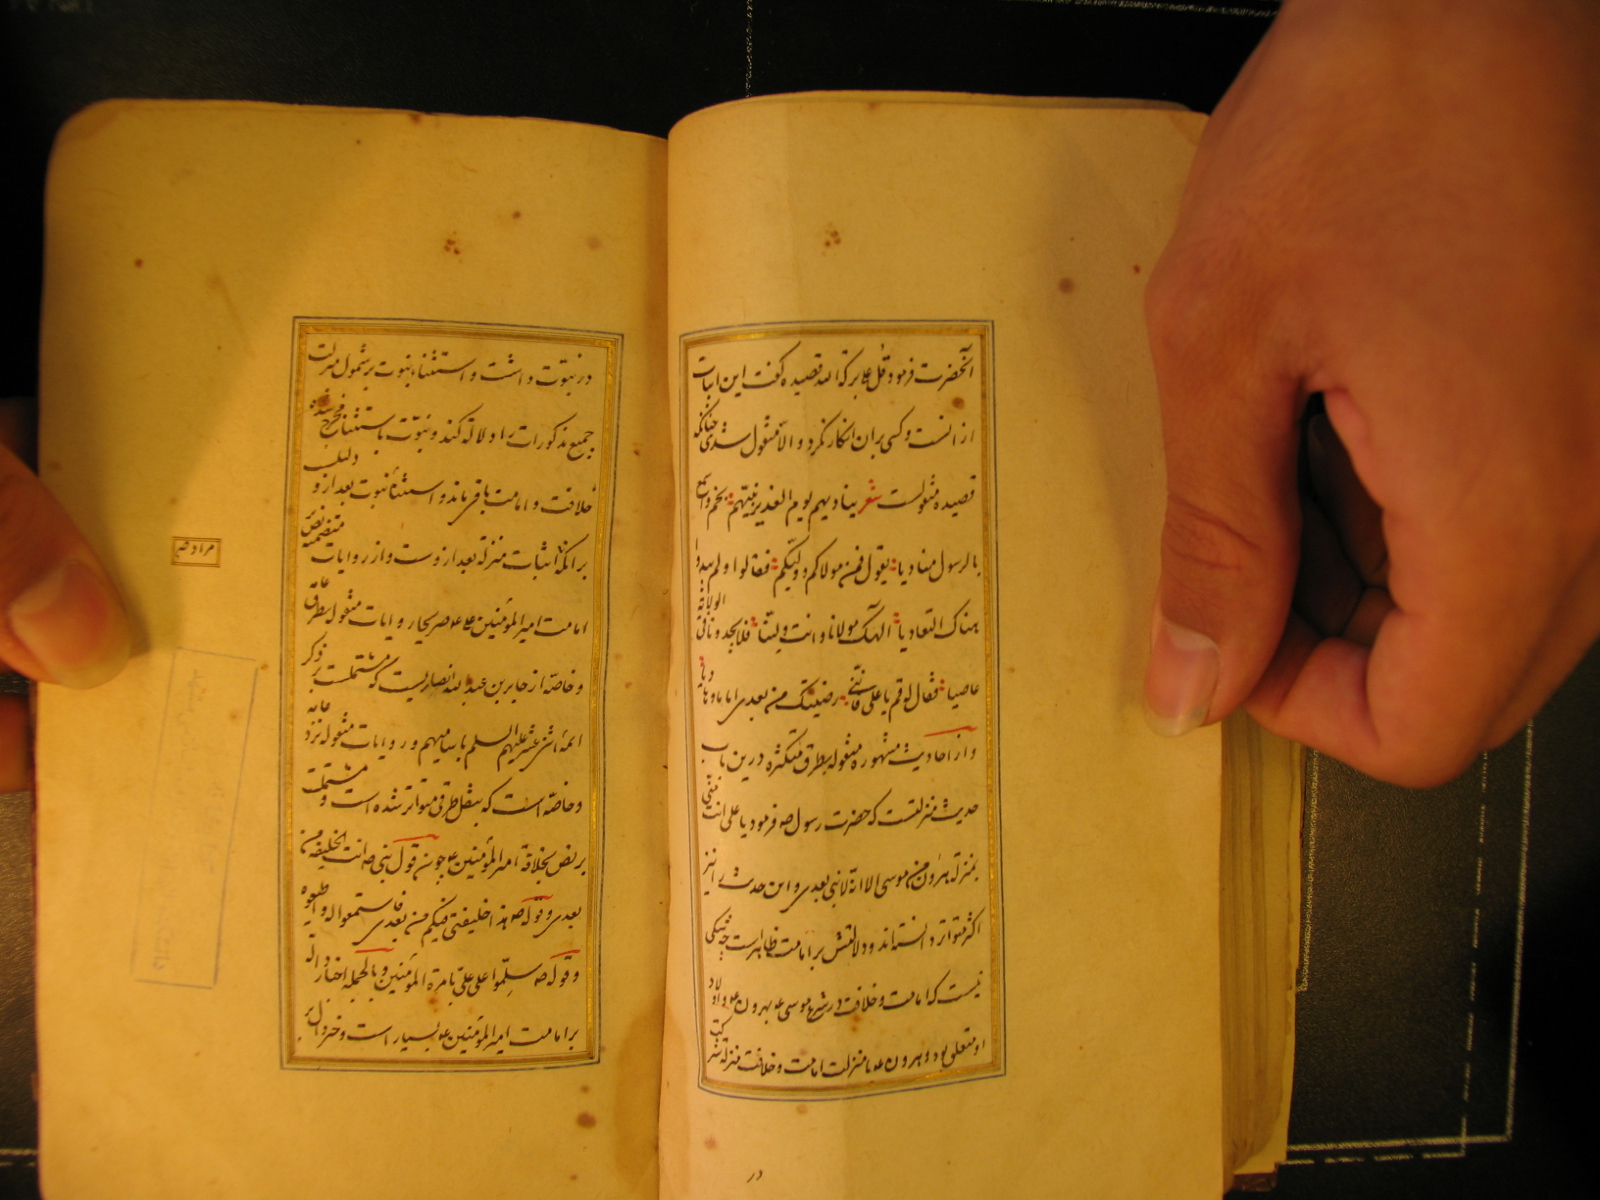 آنحضرت فرمود قل علی برکة الله قصیده گفت این ابیات
از انست و کسی بران انکار نکرد و الا منقول شدی چنانکه
قصیده منقولست شعر ینادیهم یوم الغدیر نبیهم بخم واسمع
بالرسول منادیا یقول فمن مولاکم و ولیکم فقالوا و لم یبدوا
هناک التعادیا الهک مولانا وانت ولینا فلا تجدن فی الولایة
عاصیا فقال له قم یا علی فاننی رضیتک من بعدی اماما و هادیا
و از احادیث مشهوره منقوله بطرق متکثره درین باب
حدیث منزلتست که حضرت رسول صه فرمود یا علی انت منی
بمنزلة هرون من موسی الا انه لا نبی بعدی و این حدیث را نیز
اکثر متواتر دانسته‌اند و دلالتش بر امامت ظاهرست چه شکی
نیست که امامت و خلافت در شرع موسی ع بهرون ع و اولاد
او متعلق بود و هرون ع با منزلت امامت و خلافت منزلت شرکت
در
در نبوت داشت و استثناء نبوت بر شمول منزلت
جمیع مذکورات را دلالت کند و نبوت باستثنا مخرج شده
خلافت و امامت باقی ماند و استثناء نبوت بعد از و دلیل
بر آنکه اثبات منزلة بعد ازوست و از روایات متضمنه نص
امامت امیر المؤمنین ع صریحا روایات منقول بطرق عامه
و خاصه از جابر بن عبد الله انصاریست که مشتملست بر ذکر
ائمه اثنی عشر علیهم السلم باسامیهم و روایات منقوله نزد عامه
و خاصه است که بنقل طرق متواتر شده است و مشتملست
بر نص بخلافة امیر المؤمنین ع چون قول نبی صه انت الخلیفة من
بعدی و قوله صه هذا خلیفتی فیکم من بعدی فاستمعوا له و اطیعوه
و قوله صه سلموا علی علی بامرة المؤمنین و بالجمله اخبار داله
بر امامت امیر المؤمنین ع بسیار است و خبر دال بر